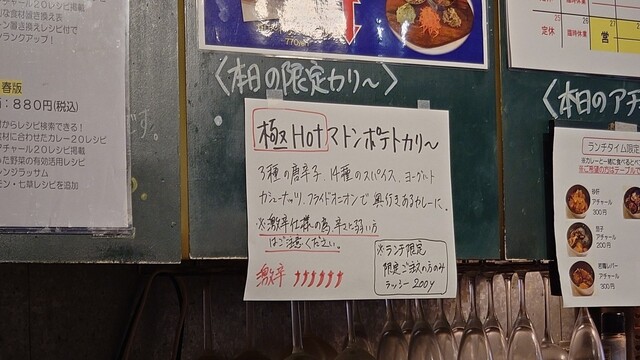 カレー20レシピ掲載
な食材置き換え表
ーン置き換えレシピ付で
ランクアップ！
春版
：880円(税込)
からレシピ検索できる！
食材に合わせたカレー20レシピ
チャール20レシピ掲載
った野菜の有効活用レシピ
レンジラッサム
モン・七草レシピを追加
です。
770
〈本日の限定カリ〜〉
極Hotマトンポテトカリ〜
3種の唐辛子、14種のスパイス、ヨーグルト
カシューナッツ、フライドオニオンで奥行きあるカレーに、
※激辛仕様の為、辛さ弱い方
はご注意ください。
激辛
※ランチ限定
限定ご注文の方のみ
ラッシー200y
25
26
27
定休
臨時休業
営
〈本日のアチ
ランチタイム限定
※カレーと一緒に食べるとベ
※ご希望の方はテーブルで
砂肝
アチャール
300円
茄子
アチャール
200円
若鶏レバー
アチャール
300円